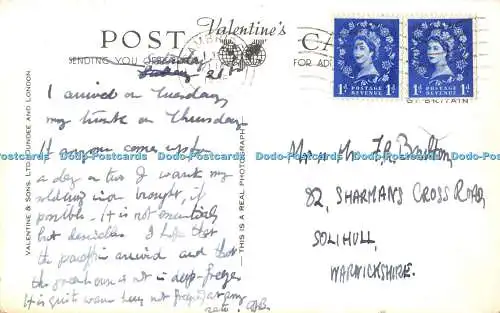 Valentine's
POST CARD
SENDING YOU
FOR AD
21st
I arrived on Tuesday,
my trunk on Thursday.
If anyone comes up for
a day or two I want my
soldering iron brought, if
possible. It is not essential
but desirable. I hope that
the paraffin arrived and that
the greenhouse is not in deep-freeze.
It is quite warm here, not freezing at any
rate!
VALENTINE & SONS, LTD., DUNDEE AND LONDON
THIS IS A REAL PHOTOGRAPH
1D POSTAGE REVENUE 1D
1D POSTAGE REVENUE 1D
BRITAIN
Mr & Mrs F.R.
82, SHARMANS CROSS ROAD,
SOLIHULL,
WARWICKSHIRE.
Dodo-Postcards Dodo-Postcards Dodo-Postcards Dodo-Postcards Dodo-Postcards Dodo-Postcards